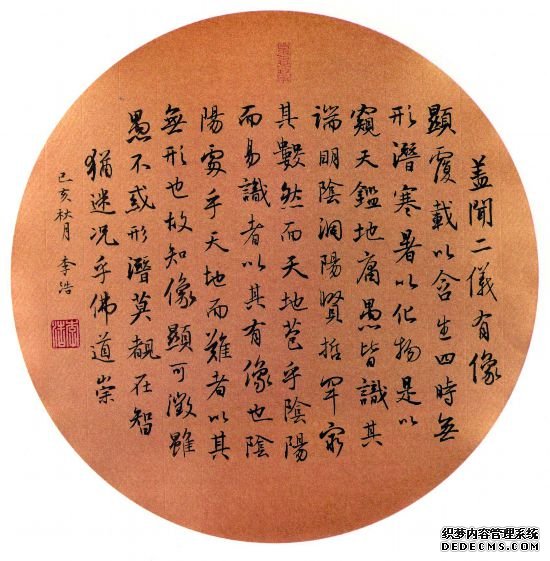 盖聞二儀有像
顯覆載以含生四時無
形潛寒暑以化物是以
窺天鑑地庸愚皆識其
端明陰洞陽賢哲罕窮
其數然而天地苞乎陰陽
而易識者以其有像也陰
陽處乎天地而難者以其
無形也故知像顯可徵雖
愚不惑形潛莫覩在智
猶迷況乎佛道崇
己亥秋月 李浩
织梦内容管理系统
DEDECMS.COM